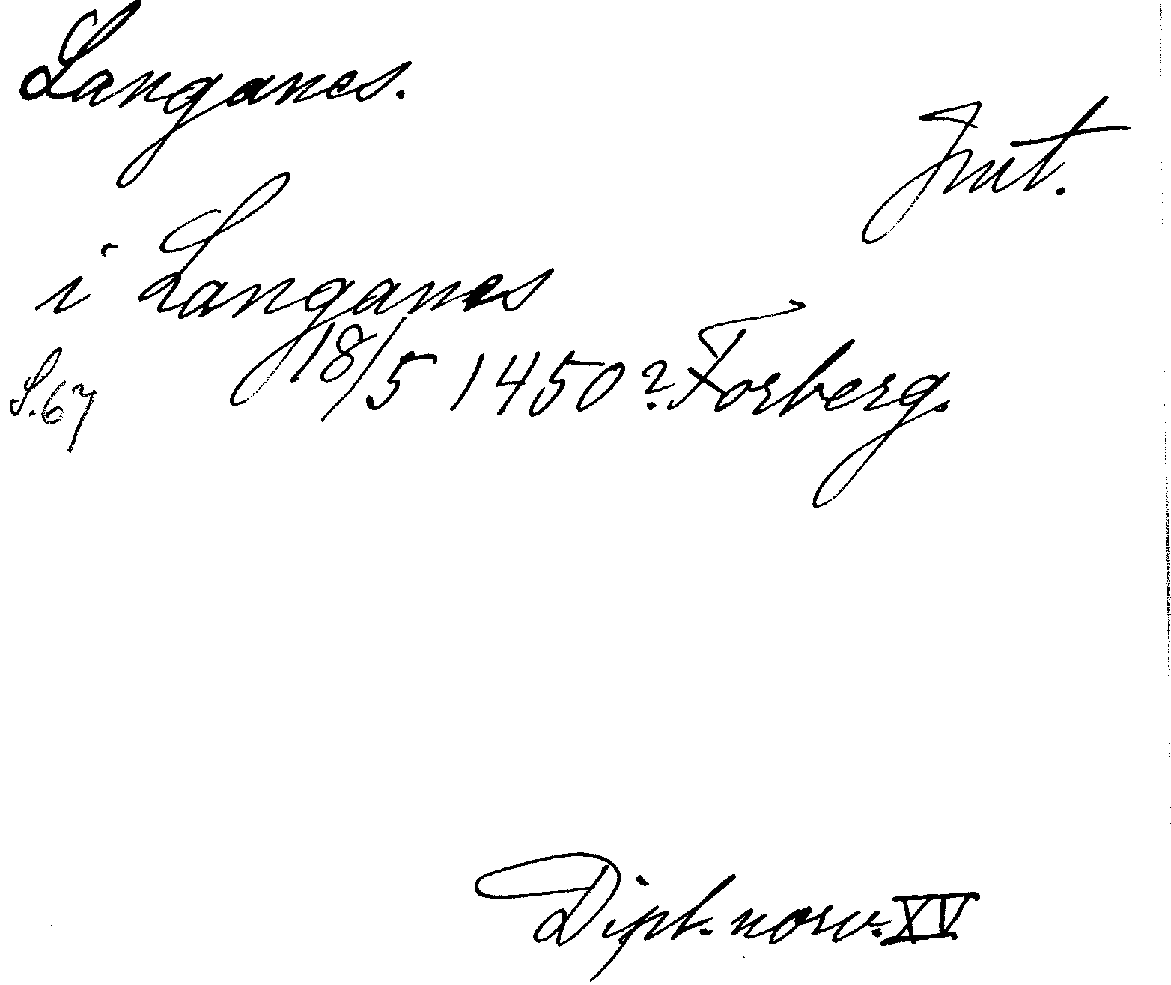 Langanes.
Jmt.
i Langanes
S.67 18/5 1450? Forberg.
Dipl. norv. XV